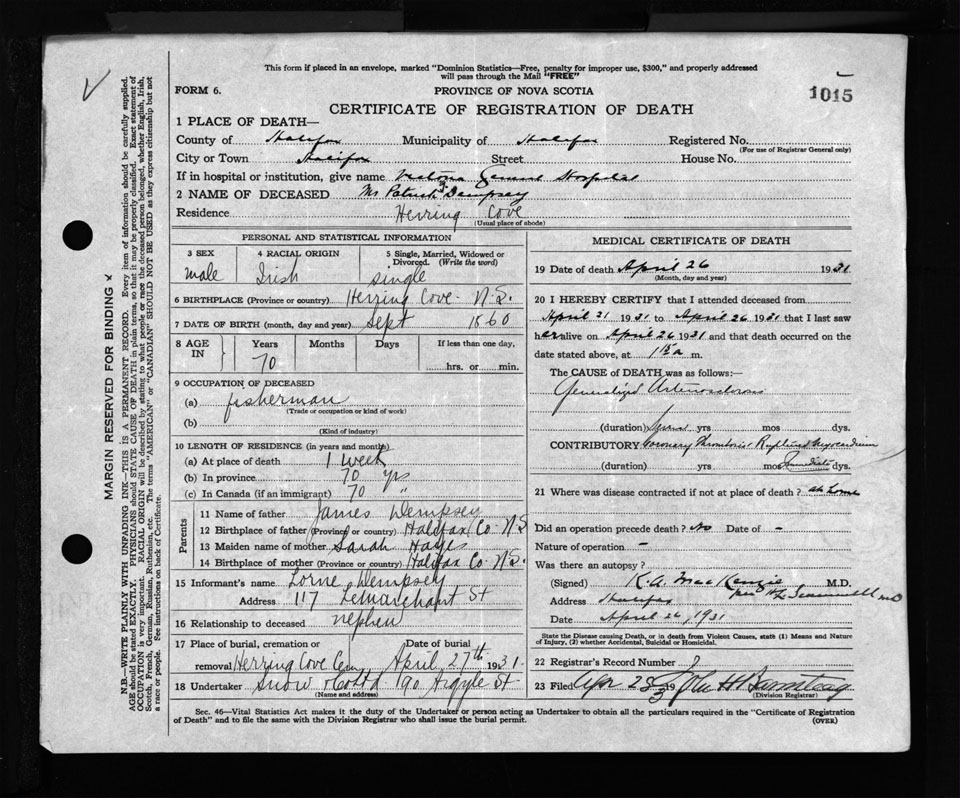 This form if placed in an envelope, marked "Dominion Statistics—Free, penalty for improper use, $300," and properly addressed
will pass through the Mail "FREE"
FORM 6.
PROVINCE OF NOVA SCOTIA
1015
CERTIFICATE OF REGISTRATION OF DEATH
1 PLACE OF DEATH—
County of Halifax Municipality of Halifax Registered No.
(For use of Registrar General only)
City or Town Halifax Street House No.
If in hospital or institution, give name Victoria General Hospital
2 NAME OF DECEASED Mr Patrick J. Dempsey
Residence Herring Cove
(Usual place of abode)
PERSONAL AND STATISTICAL INFORMATION
3 SEX 4 RACIAL ORIGIN 5 Single, Married, Widowed or Divorced. (Write the word)
male Irish single
6 BIRTHPLACE (Province or country) Herring Cove - N.S.
7 DATE OF BIRTH (month, day and year) Sept 1860
8 AGE IN Years Months Days If less than one day,
70 hrs. or min.
9 OCCUPATION OF DECEASED
(a) fisherman
(Trade or occupation or kind of work)
(b)
(Kind of industry)
10 LENGTH OF RESIDENCE (in years and months)
(a) At place of death 1 week
(b) In province 70 yrs
(c) In Canada (if an immigrant) 70 "
Parents
11 Name of father James Dempsey
12 Birthplace of father (Province or country) Halifax Co - N.S.
13 Maiden name of mother Sarah Hayes
14 Birthplace of mother (Province or country) Halifax Co - N.S.
15 Informant's name Lorne Dempsey
Address 117 LeMarchant St
16 Relationship to deceased nephew
17 Place of burial, cremation or removal Herring Cove Cem Date of burial April 27th 1931
18 Undertaker Snow & Co Ltd 90 Argyle St
(Name and address)
MEDICAL CERTIFICATE OF DEATH
19 Date of death April 26 1931
(Month, day and year)
20 I HEREBY CERTIFY that I attended deceased from
April 21 1931 to April 26 1931 that I last saw
alive on April 26 1931 and that death occurred on the
date stated above, at m.
The CAUSE of DEATH was as follows:—
Generalized Arteriosclerosis
(duration) yrs mos dys.
CONTRIBUTORY Coronary Thrombosis Ruptured Myocardium
(duration) yrs mos Immediate dys.
21 Where was disease contracted if not at place of death? at home
Did an operation precede death? No Date of -
Nature of operation -
Was there an autopsy?
(Signed) K.A. MacKenzie M.D.
Address Halifax
Date April 26, 1931
State the Disease causing Death, or in death from Violent Causes, state (1) Means and Nature
of Injury, (2) whether Accidental, Suicidal or Homicidal.
22 Registrar's Record Number
23 Filed Apr 28 John H
(Division Registrar)
Sec. 46—Vital Statistics Act makes it the duty of the Undertaker or person acting as Undertaker to obtain all the particulars required in the "Certificate of Registration
of Death" and to file the same with the Division Registrar who shall issue the burial permit.
(OVER)
MARGIN RESERVED FOR BINDING
N.B.—WRITE PLAINLY WITH UNFADING INK—THIS IS A PERMANENT RECORD. Every item of information should be carefully supplied.
AGE should be stated EXACTLY. PHYSICIANS should STATE CAUSE OF DEATH in plain terms, so that it may be properly classified. Exact statement of
OCCUPATION is very important. RACIAL ORIGIN will be described by stating to what people or race the deceased person belonged, whether English, Irish,
Scotch, French, German, Russian, Ruthenian, etc. The terms "AMERICAN" or "CANADIAN" SHOULD NOT BE USED as they express citizenship but not
a race or people. See instructions on back of Certificate.